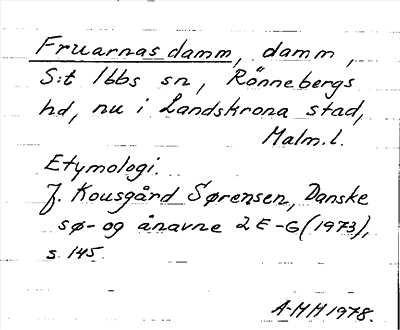 Fruarnas damm, damm,
S:t Ibbs sn, Rönnebergs
hd, nu i Landskrona stad,
Malm.l.
Etymologi.
J. Kousgård Sørensen, Danske
sø- og ånavne 2 E-G (1973),
s. 145.
A-HH 1978.